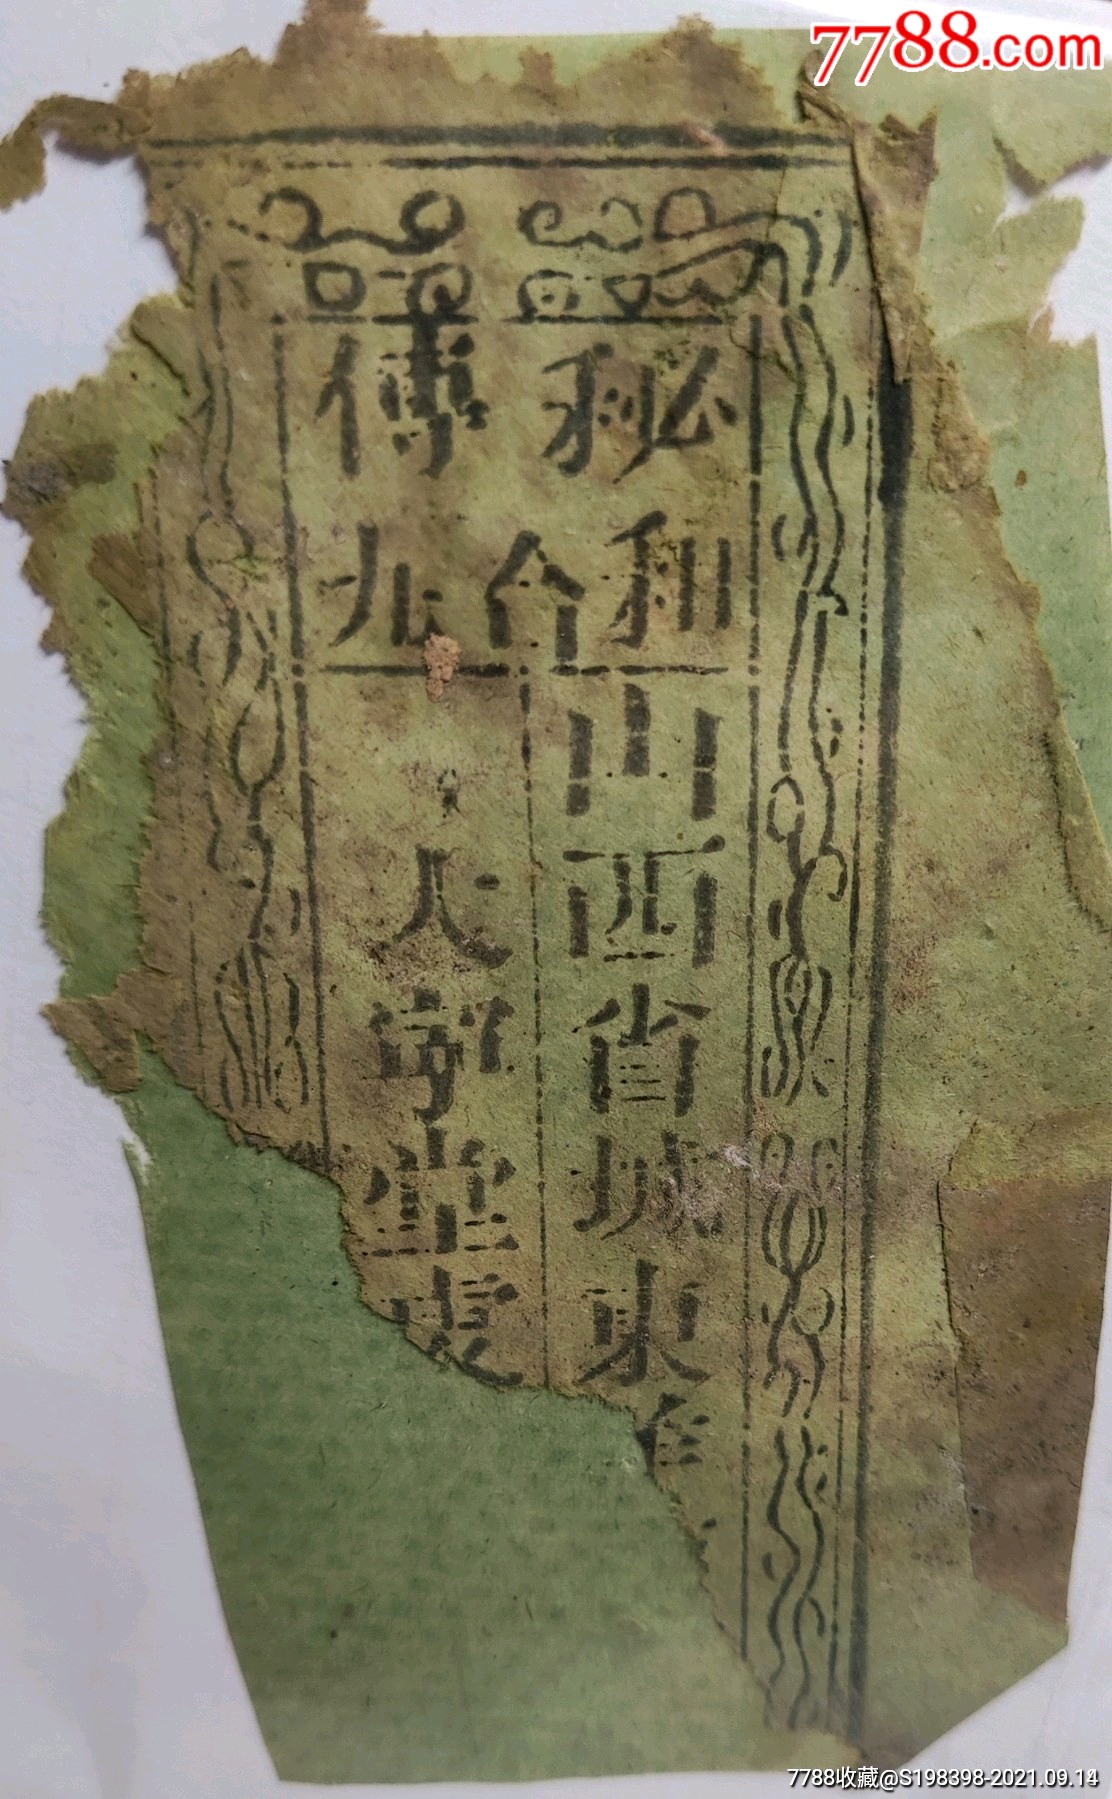 秘傳
和合丸
山西省城東
大宁堂虔
7788.com
7788收藏@S198398-2021.09.14